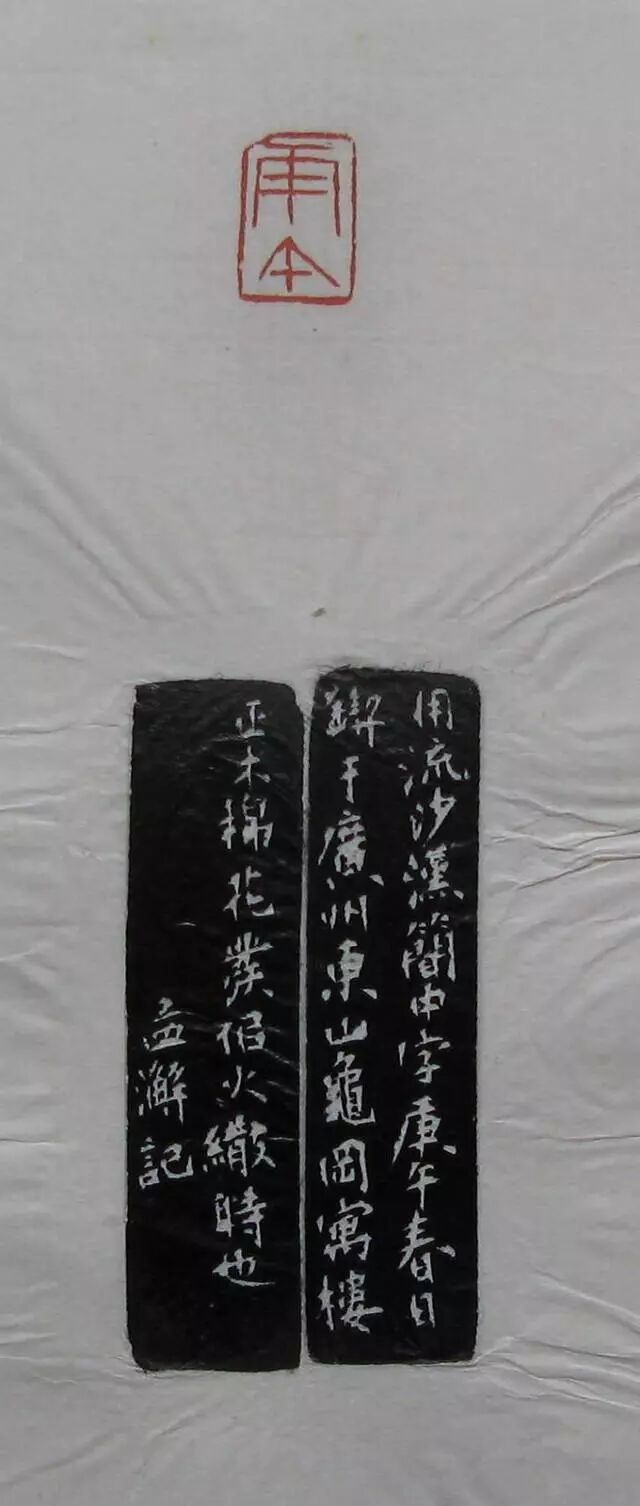 用流沙漢簡中字庚午春日
鍥于廣州東山龜岡寓樓
正木棉花發佀火繖時也
孟澥記